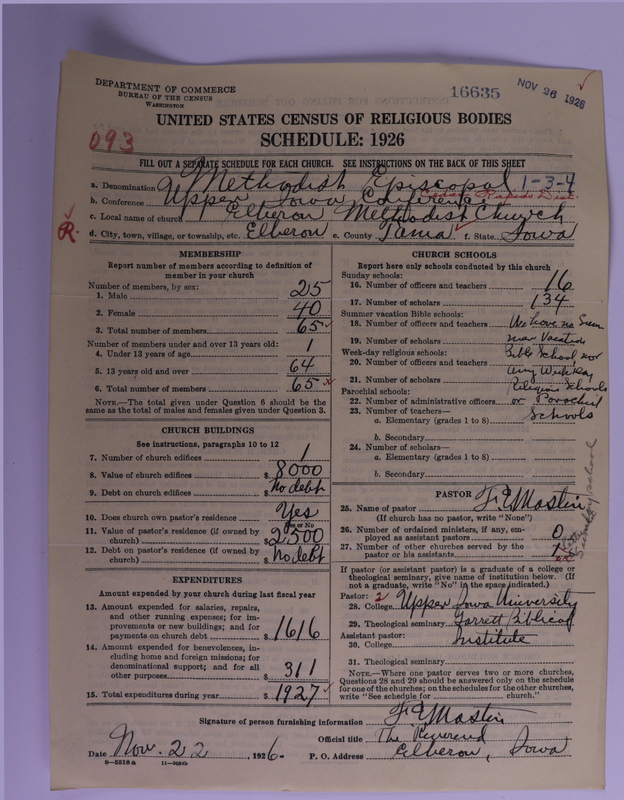 DEPARTMENT OF COMMERCE
BUREAU OF THE CENSUS
WASHINGTON
16635
NOV 26 1926
UNITED STATES CENSUS OF RELIGIOUS BODIES
SCHEDULE: 1926
093
FILL OUT A SEPARATE SCHEDULE FOR EACH CHURCH. SEE INSTRUCTIONS ON THE BACK OF THIS SHEET
a. Denomination Methodist Episcopal 1-3-4
b. Conference Upper Iowa Conference Cedar Rapids Dist.
c. Local name of church Elberon Methodist Church
R.
d. City, town, village, or township, etc. Elberon e. County Tama f. State Iowa
MEMBERSHIP
Report number of members according to definition of
member in your church
Number of members, by sex:
1. Male 25
2. Female 40
3. Total number of members 65
Number of members under and over 13 years old:
4. Under 13 years of age 1
5. 13 years old and over 64
6. Total number of members 65
NOTE.—The total given under Question 6 should be the
same as the total of males and females given under Question 3.
CHURCH BUILDINGS
See instructions, paragraphs 10 to 12
7. Number of church edifices 1
8. Value of church edifices $ 8000
9. Debt on church edifices $ No debt
10. Does church own pastor's residence Yes
Yes or No
11. Value of pastor's residence (if owned by
church) $ 2,500
12. Debt on pastor's residence (if owned by
church) $ No debt
EXPENDITURES
Amount expended by your church during last fiscal year
13. Amount expended for salaries, repairs,
and other running expenses; for im-
provements or new buildings; and for
payments on church debt $ 1616
14. Amount expended for benevolences, in-
cluding home and foreign missions; for
denominational support; and for all
other purposes $ 311
15. Total expenditures during year $ 1927
CHURCH SCHOOLS
Report here only schools conducted by this church
Sunday schools:
16. Number of officers and teachers 16
17. Number of scholars 134
Summer vacation Bible schools:
18. Number of officers and teachers We have no Sum
19. Number of scholars mer Vacation
Week-day religious schools: Bible School nor
20. Number of officers and teachers any Weekday
21. Number of scholars Religion Schools
Parochial schools:
22. Number of administrative officers or Parochial
23. Number of teachers— Schools
a. Elementary (grades 1 to 8)
b. Secondary
24. Number of scholars—
a. Elementary (grades 1 to 8)
b. Secondary
PASTOR
25. Name of pastor F. E. Mastin
(If church has no pastor, write "None")
26. Number of ordained ministers, if any, em-
ployed as assistant pastors 0
27. Number of other churches served by the
pastor or his assistants 1
Sunday school
If pastor (or assistant pastor) is a graduate of a college or
theological seminary, give name of institution below. (If
not a graduate, write "No" in the space indicated.)
Pastor: 2
28. College Upper Iowa University
29. Theological seminary Garrett Biblical
Assistant pastor: Institute
30. College
31. Theological seminary
NOTE.—Where one pastor serves two or more churches,
Questions 28 and 29 should be answered only on the schedule
for one of the churches; on the schedules for the other churches,
write "See schedule for church."
Signature of person furnishing information F. E. Mastin
Official title The Reverend
Date Nov. 22, 1926. P. O. Address Elberon, Iowa
8—5518a